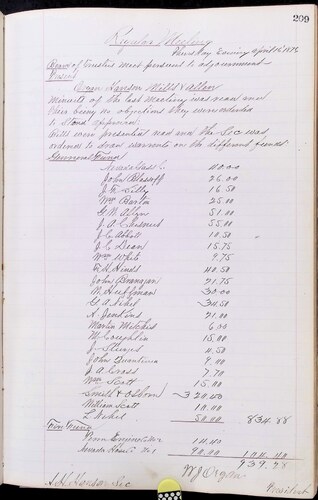 209
Regular Meeting
Thursday Evening April
Board of Trustees meet persuant to adjournment
Present
Organ Hanson Mills & Allen
Minutes of the last Meeting was read and
their being no objections they were ordered
to stand approved
Bills were presented read and the Sec was
ordered to draw warrants on the different funds
General Fund
40.00
John Blessoff 26.00
J. F. Silly 16.50
Wm Barton 25.00
G. W. Allyn 51.00
J. A. Chesnut 55.00
J. C. Abbott 10.50
J. C. Dean 15.75
Wm White 9.75
E. K. Hinds 41.50
John Branagan 21.75
W. Huffman 30.00
G. A. Sikes 34.50
A. Jenkins 21.00
Martin Mitchell 6.00
M. Coughlin 15.00
J. Sturges 4.50
John 9.00
J. A. Cross 7.70
Wm Scott 15.00
Smith & Osborn 320.40
William Scott 10.00
L. Nickel 50.00 834.88
Fire Fund
Penn Engine No 2 14.40
Nevada Hose No 1 90.00 104.40
939.28
W J Organ
President
A. H. Hanson Sec